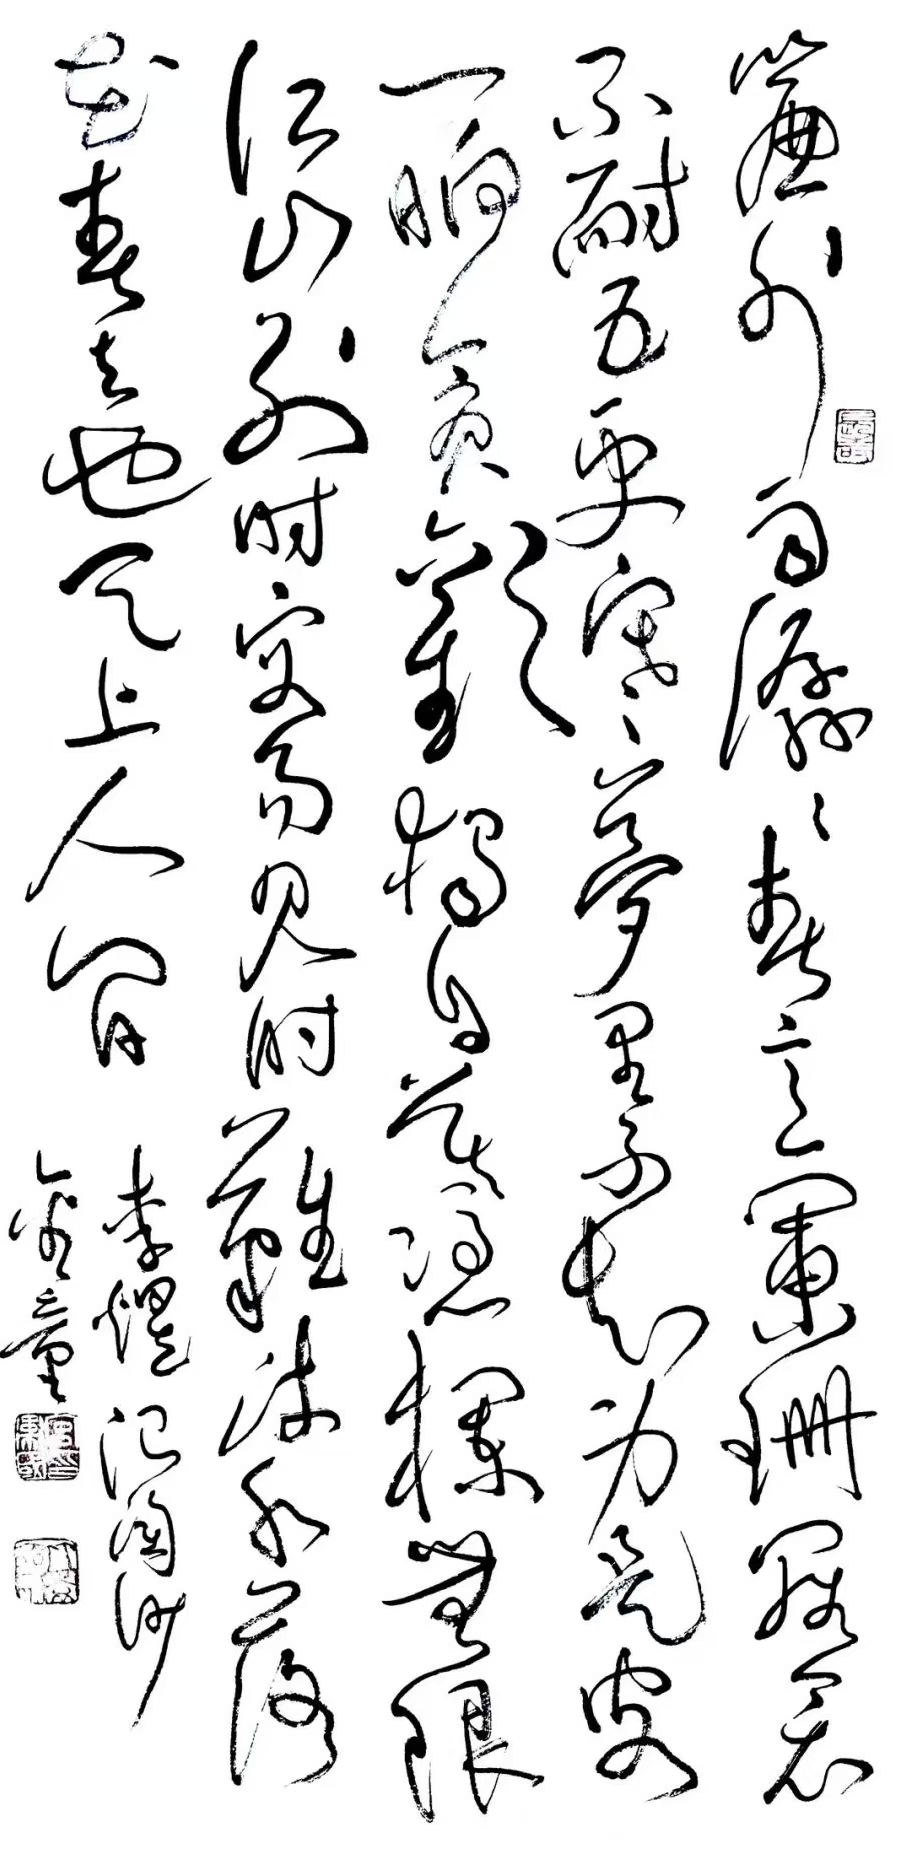 簾外雨潺〻春意闌珊羅衾
不耐五更寒〻夢里不知身是客
一晌貪歡獨自莫憑欄無限
江山別時容易見時難流水落
花春去也天上人間
李煜浪淘沙